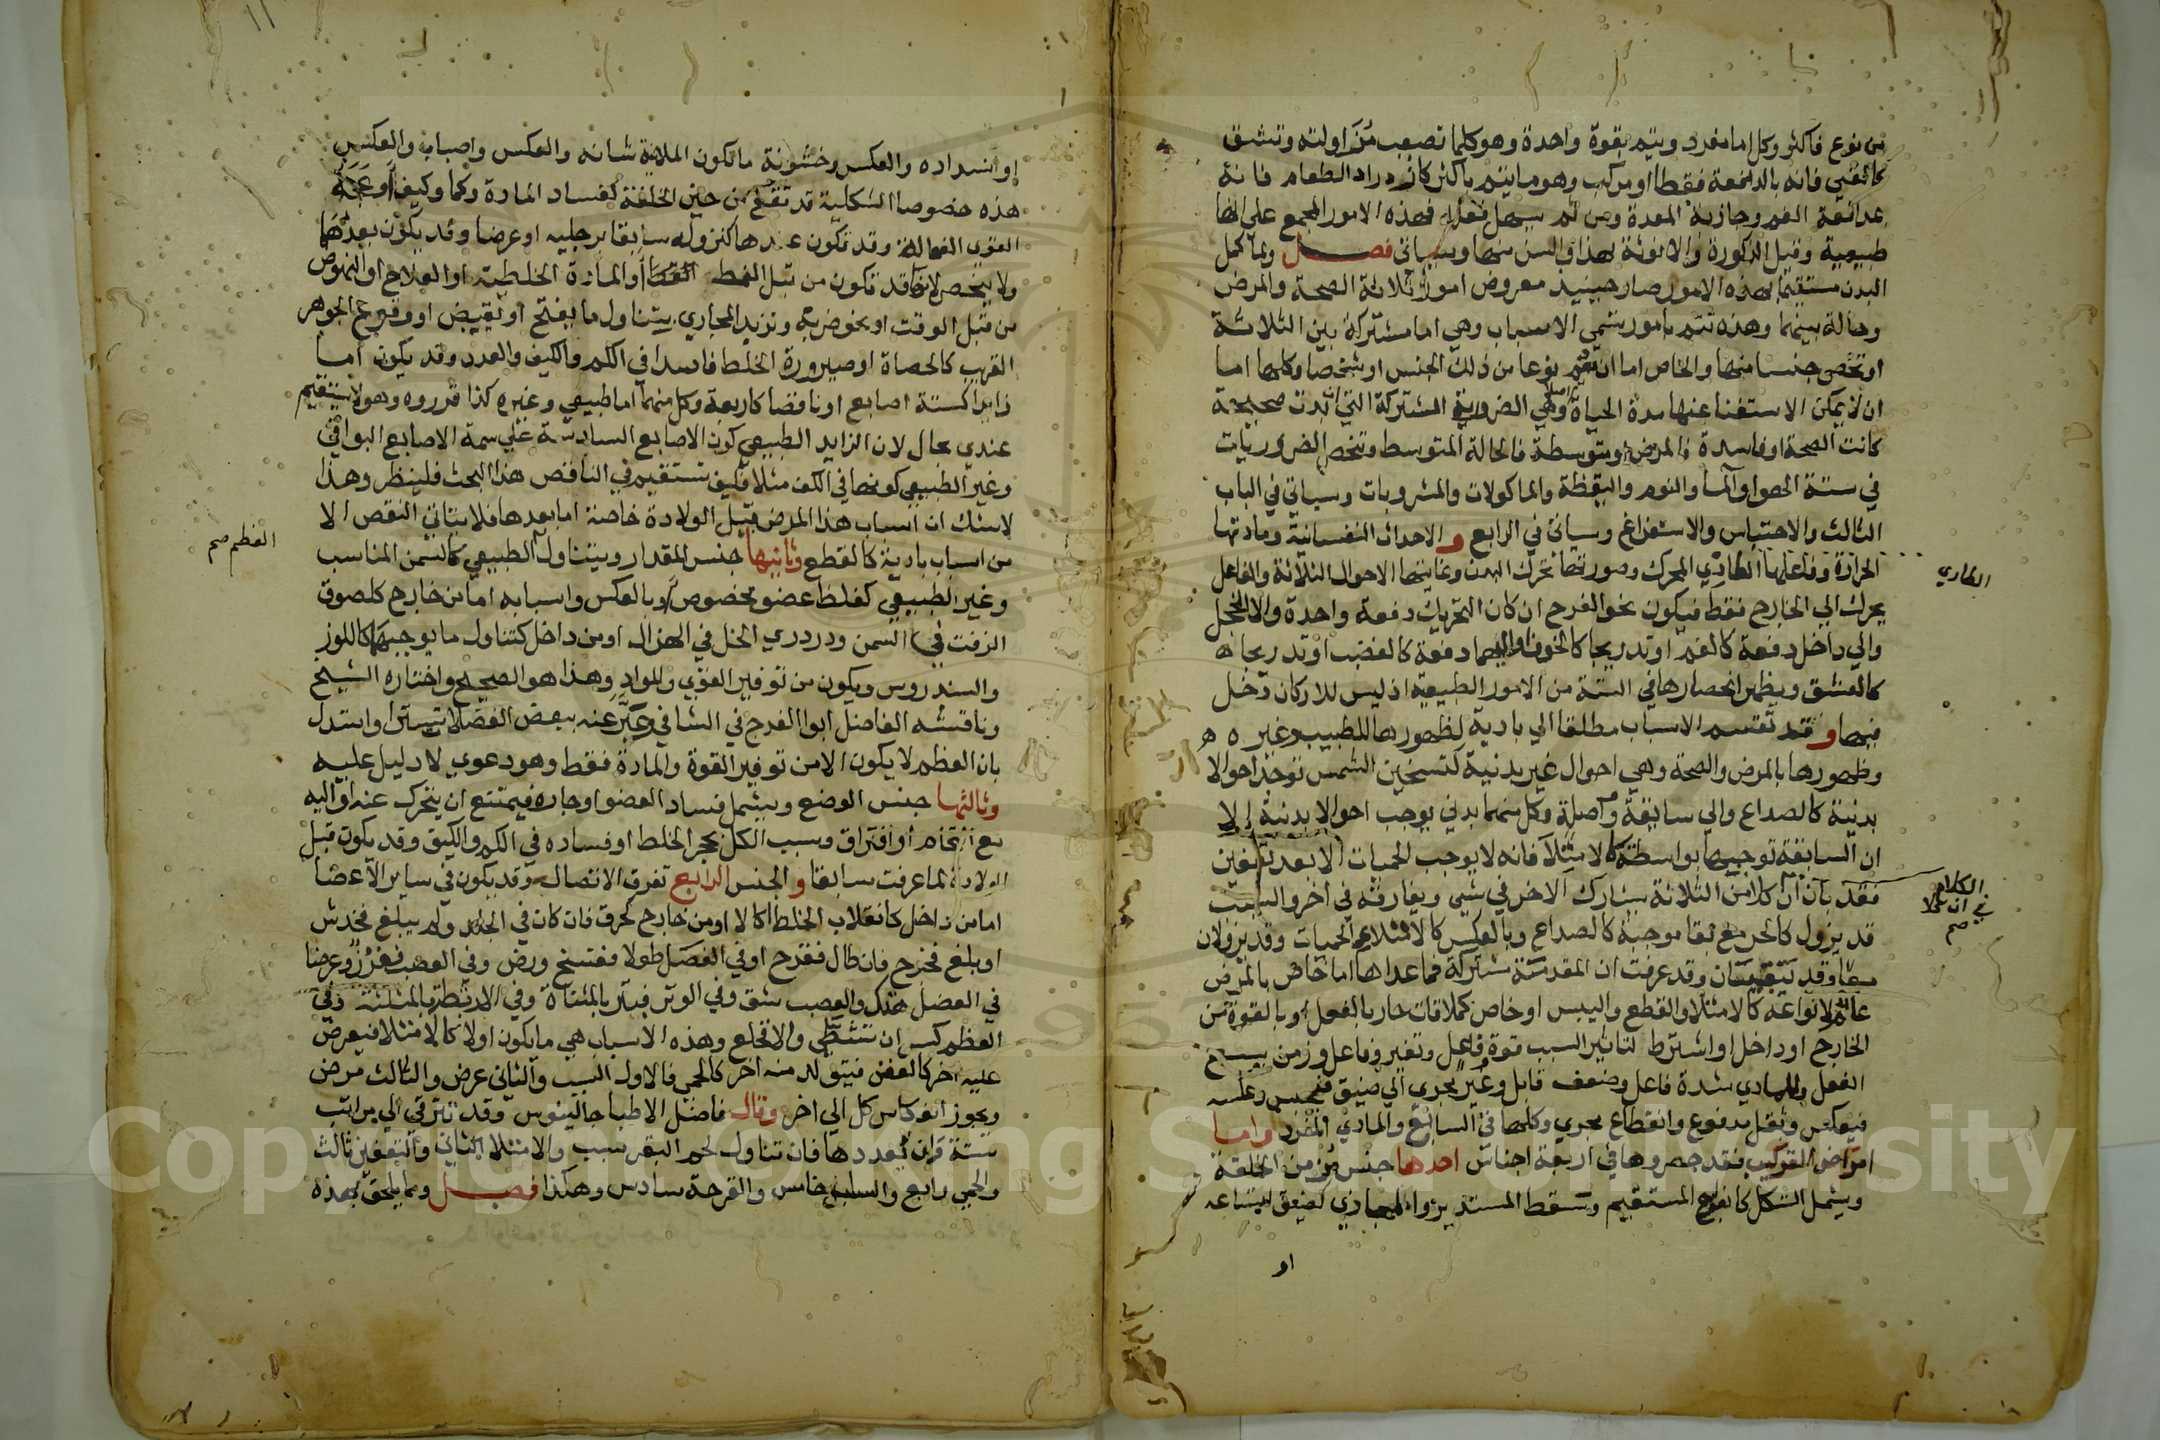 من نوع فاكثر وكل اما مفرد ويتم بقوة واحدة وهو كلما تصعب مزاولته وتشق
كالقي فانه بالدافعة فقط او مركب وهو ما يتم باكثر كازدراد الطعام فانه
بدافعة الفم وجاذبة المعدة ومن ثم سهل فعله فهذه الامور المجمع على انها
طبيعية وقيل الذكورة والانوثة هذا والسن منها وسياتي فصل ولما كمل
البدن مستقيما بهذه الامور صار حينيذ معروض امور ثلاثة الصحة والمرض
وحالة بينهما وهذه تتم بامور تسمى الاسباب وهي اما مشتركة بين الثلاثة
او تخص جنسا منها والخاص اما ان يعم نوعا من ذلك الجنس او شخصا وكلها اما
ان لا يمكن الاستغنا عنها مدة الحياة وهي الضرورية المشتركة التي ان بدت صحيحة
كانت الصحة او فاسدة فالمرض او متوسطة فالحالة المتوسط وتنحصر الضروريات
في ستة الهوا والما والنوم واليقظة والماكولات والمشروبات وسياتي في الباب
الثالث والاحتباس والاستفراغ وسياتي في الرابع والاحداث النفسانية ومادتها
الحرارة وفاعلها الطاري المحرك وصورتها تحرك البدن وغايتها الاحوال الثلاثة والفاعل
يحرك الي الخارج فقط فيكون نحو الفرح ان كان التحريك دفعة واحدة والا الخجل
والي داخل دفعة كالغم او تدريجا كالخوف واليهما دفعة كالغضب او تدريجا
كالعشق ويظهر انحصارها في الستة من الامور الطبيعية اذ ليس للاركان دخل
فيها وقد تقسم الاسباب مطلقا الي بادية لظهورها للطبيب وغيره
وظهورها بالمرض والصحة وهي احوال غير بدنية كتسخين الشمس توجد احوالا
بدنية كالصداع والي سابقة وواصلة وكل منهما بدني يوجب احوالا بدنية الا
ان السابقة توجبها بواسطة كالامتلا فانه لا يوجب الحميات الا بعد تعفين
فقد بان ان كلا من الثلاثة يشارك الاخر في شي ويفارقه في اخر والسابقة
قد يزول كالحر مع بقا موجبه كالصداع وبالعكس كالامتلا مع الحميات وقد يزولان
معا وقد يبقيان وقد عرفت ان المقدمة مشتركة فما عداها اما خاص بالمرض
عام لانواعه كالامتلا والقطع واليبس او خاص كملاقات حار بالفعل او بالقوة من
الخارج او داخل او اشترط لتاثير السبب قوة فاعل وتغير وفاعل وزمن يسع
الفعل وللمادي شدة فاعل وضعف قابل وغير مجرى الي ضيق
فيعكس وثقل مدفوع وانقطاع مجري وكلها في السابق والمادي المفرد واما
امراض التركيب فقد حصروها في اربعة اجناس احدها جنس مرض الخلقة
ويشمل الشكل كاعوجاج المستقيم وتسقط المستدير والمجاري كضيق اتساعه
او
الطاري
الكلام
في ان كلا
صح
او انسداده والعكس وخشونة ما تكون الملاسة شانه والعكس واصابة والعكس
هذه خصوصا الشكلية قد تقع من حين الخلقة لفساد المادة وكما وكيفا
القوي الفعالة وقد تكون عندها كنزوله سابقا برجليه او عرضا وقد يكون بعدهما
ولا ينحصر لانها قد تكون من قبل القمط او المادة الخلطية او العلاج او النهوض
من قبل الوقت او نحو ضربة وتزيد المجاري بتناول ما يفتح او يقبض او وقوع الجوهر
الغريب كالحصاة او صيرورة الخلط فاسدا في الكم والكيف والعدد وقد يكون اما
زايدا كستة اصابع او ناقصا كاربعة وكل منهما اما طبيعي وغيره كذا قرروه وهو لا يستقيم
عندي بحال لان الزايد الطبيعي كون الاصابع السادسة علي سمة الاصابع البواقي
وغير الطبيعي كونها في الكف مثلا فكيف تستقيم في الناقص هذا البحث فلينظر وهذا
لا شك ان اسباب هذا المرض قبل الولادة خاصة اما بعدها فلا يتاتي النقص الا
من اسباب بادية كالقطع وثانيها جنس المقدار ويتناول الطبيعي كالسمن المناسب
وغير الطبيعي كغلظ عضو مخصوص وبالعكس واسبابه اما من خارج كلصوق
الزفت في السمن ودردري الخل في الهزال او من داخل كتناول ما يوجبهما كاللوز
والسندروس ويكون من توفير القوي والمواد وهذا هو الصحيح واختاره الشيخ
وناقشه الفاضل ابو الفرج في الشافي وعبر عنه ببعض الفضلا تسترا واستدل
بان العظم لا يكون الا من توفير القوة والمادة فقط وهو دعوي لا دليل عليه
وثالثها جنس الوضع ويشمل فساد العضو او جاره فيمتنع ان يتحرك عنه او اليه
مع التحام او افتراق وسبب الكل تحجر الخلط او فساده في الكم والكيف وقد يكون قبل
الولادة لما عرفت سابقا والجنس الرابع تفرق الاتصال وقد يكون في ساير الاعضا
اما من داخل كانقلاب الخلط اكالا او من خارج كحرق فان كان في الجلد ولم يبلغ فخدش
او بلغ فجرح فان طال فقرح او في العضل طولا ففسخ ورض وفي العصب فغزز وعرضا
في العضل هتك والعصب شق وفي الوتر فبتر بالمثناة وفي الاربطة بالمثلثة وفي
العظم كسر ان تشظى والا فخلع وهذه الاسباب هي ما يكون اولا كالامتلا فيعرض
عليه اخر كالعفن فيتولد منه اخر كالحمي فالاول السبب والثاني عرض والثالث مرض
ويجوز انعكاس كل الي اخر وقال فاضل الاطبا جالينوس وقد تترقي الي مراتب
ستة وان لم يعددها فان تناول لحم البقر سبب والامتلا الثاني والتعفن ثالث
والحمي رابع والسل خامس والقرحة سادس وهكذا فصل ومما يلحق بهذه
العظم صح